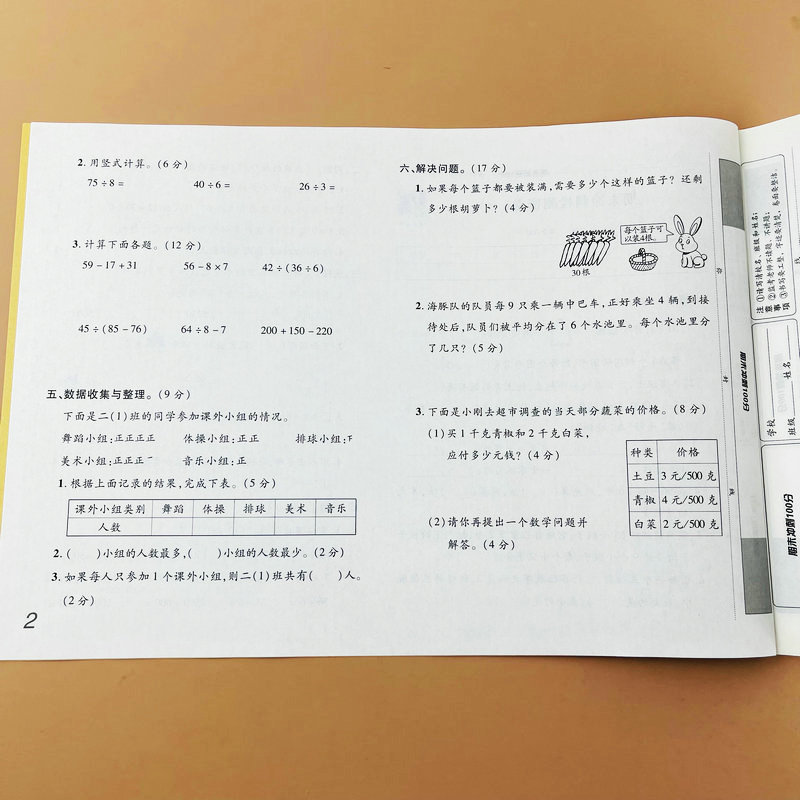 2. 用竖式计算。(6分)
75÷8= 40÷6= 26÷3=
3. 计算下面各题。(12分)
59-17+31 56-8×7 42÷(36÷6)
45÷(85-76) 64÷8-7 200+150-220
五、数据收集与整理。(9分)
下面是二(1)班的同学参加课外小组的情况。
舞蹈小组:正正正正 体操小组:正正 排球小组:
美术小组:正正正 音乐小组:正
1. 根据上面记录的结果,完成下表。(5分)
课外小组类别 舞蹈 体操 排球 美术 音乐
人数
2. ( )小组的人数最多,( )小组的人数最少。(2分)
3. 如果每人只参加1个课外小组,则二(1)班共有( )人。
(2分)
2
六、解决问题。(17分)
1. 如果每个篮子都要被装满,需要多少个这样的篮子?还剩
多少根胡萝卜?(4分)
每个篮子可
以装4根。
30根
2. 海豚队的队员每9只乘一辆中巴车,正好乘坐4辆,到接
待处后,队员们被平均分在了6个水池里。每个水池里分
了几只?(5分)
3. 下面是小刚去超市调查的当天部分蔬菜的价格。(8分)
(1)买1千克青椒和2千克白菜,
应付多少元钱?(4分)
(2)请你再提出一个数学问题并
解答。(4分)
种类 价格
土豆 3元/500克
青椒 4元/500克
白菜 2元/500克
注意事项
①请写清校名、班级和姓名;
②监考老师不读题、不讲题;
③书写要工整、字迹要清楚、卷面要整洁。
学校
班级 姓名
期末冲刺100分